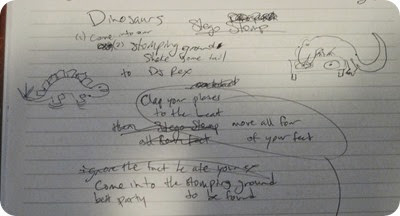 Dinosaurs
Stego Stomp
(1) Come into our
(2) Stomping ground
Shake some tail
to DJ Rex
Clap your plates
to the beat
then Stego Stomp move all four
all four feet of your feet
ignore the fact he ate your
Come into the stomping ground
best party to be found